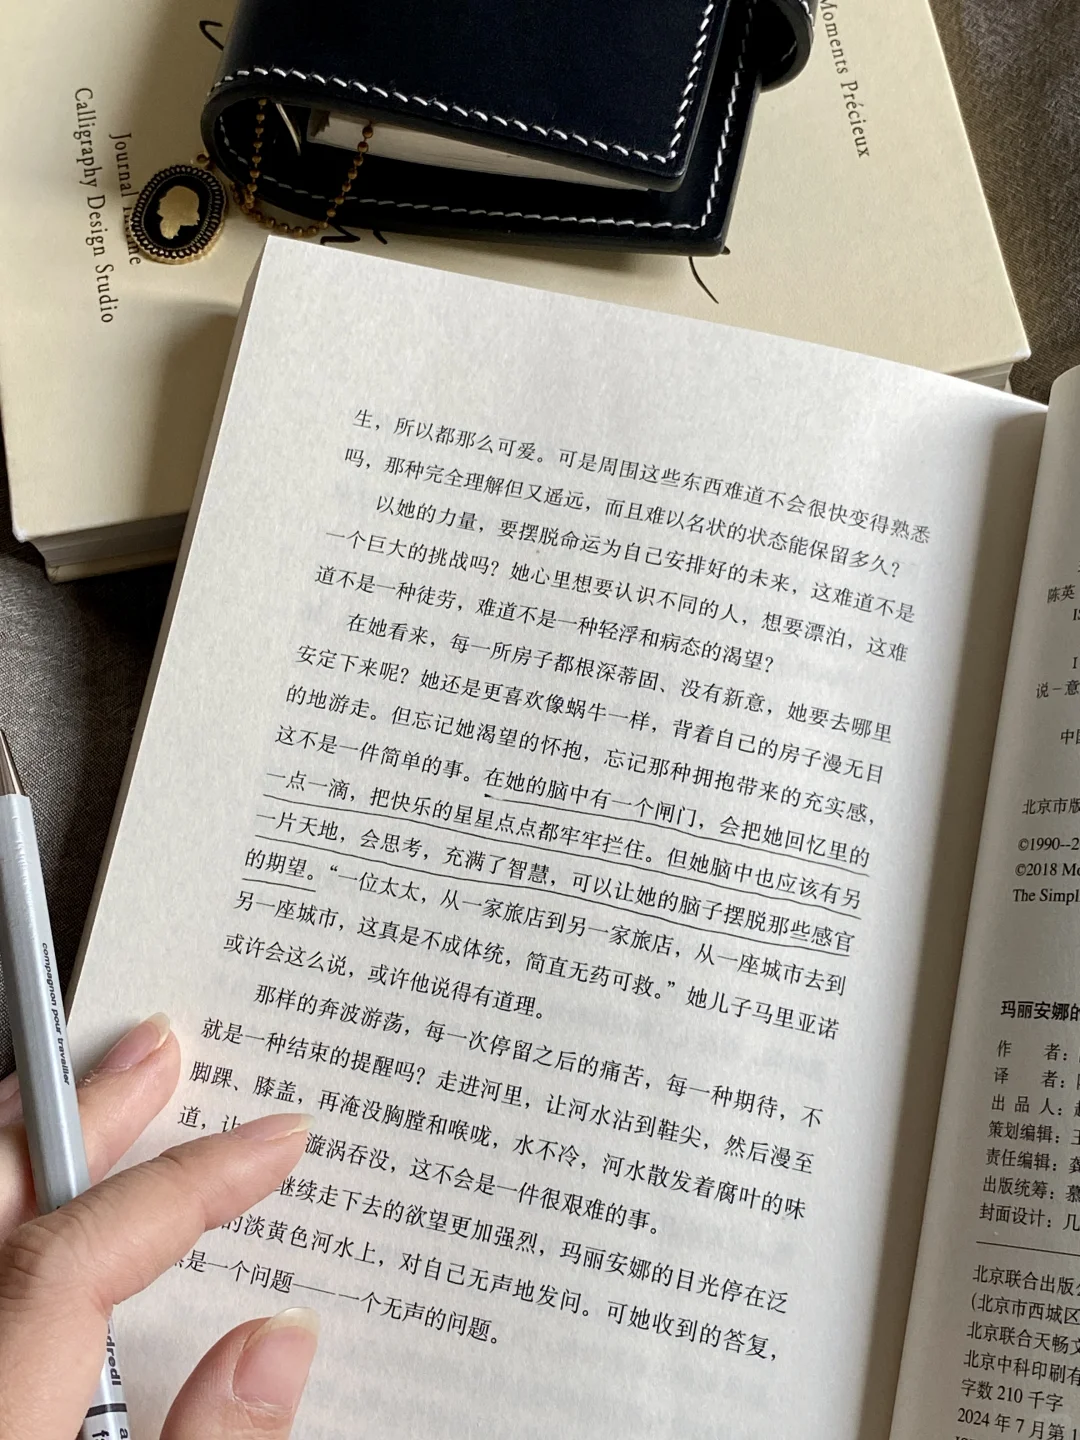 Moments Précieux
Journal
Calligraphy Design Studio
生，所以都那么可爱。可是周围这些东西难道不会很快变得熟悉
吗，那种完全理解但又遥远，而且难以名状的状态能保留多久？
以她的力量，要摆脱命运为自己安排好的未来，这难道不是
一个巨大的挑战吗？她心里想要认识不同的人，想要漂泊，这难
道不是一种徒劳，难道不是一种轻浮和病态的渴望？
在她看来，每一所房子都根深蒂固、没有新意，她要去哪里
安定下来呢？她还是更喜欢像蜗牛一样，背着自己的房子漫无目
的地游走。但忘记她渴望的怀抱，忘记那种拥抱带来的充实感，
这不是一件简单的事。在她的脑中有一个闸门，会把她回忆里的
一点一滴，把快乐的星星点点都牢牢拦住。但她脑中也应该有另
一片天地，会思考，充满了智慧，可以让她的脑子摆脱那些感官
的期望。“一位太太，从一家旅店到另一家旅店，从一座城市去到
另一座城市，这真是不成体统，简直无药可救。”她儿子马里亚诺
或许会这么说，或许他说得有道理。
那样的奔波游荡，每一次停留之后的痛苦，每一种期待，不
就是一种结束的提醒吗？走进河里，让河水沾到鞋尖，然后漫至
脚踝、膝盖，再淹没胸膛和喉咙，水不冷，河水散发着腐叶的味
道，让 漩涡吞没，这不会是一件很艰难的事。
继续走下去的欲望更加强烈，玛丽安娜的目光停在泛
的淡黄色河水上，对自己无声地发问。可她收到的答复，
是一个问题——一个无声的问题。
compagnon pour travailler
陈英
说－意
中国
北京市版
©1990--2
©2018 Mo
The Simpl
玛丽安娜的
作 者：
译 者：
出 品 人：
策划编辑：
责任编辑：
出版统筹：
封面设计：几
北京联合出版
(北京市西城区
北京联合天畅文
北京中科印刷有
字数 210 千字
2024 年 7 月第 1